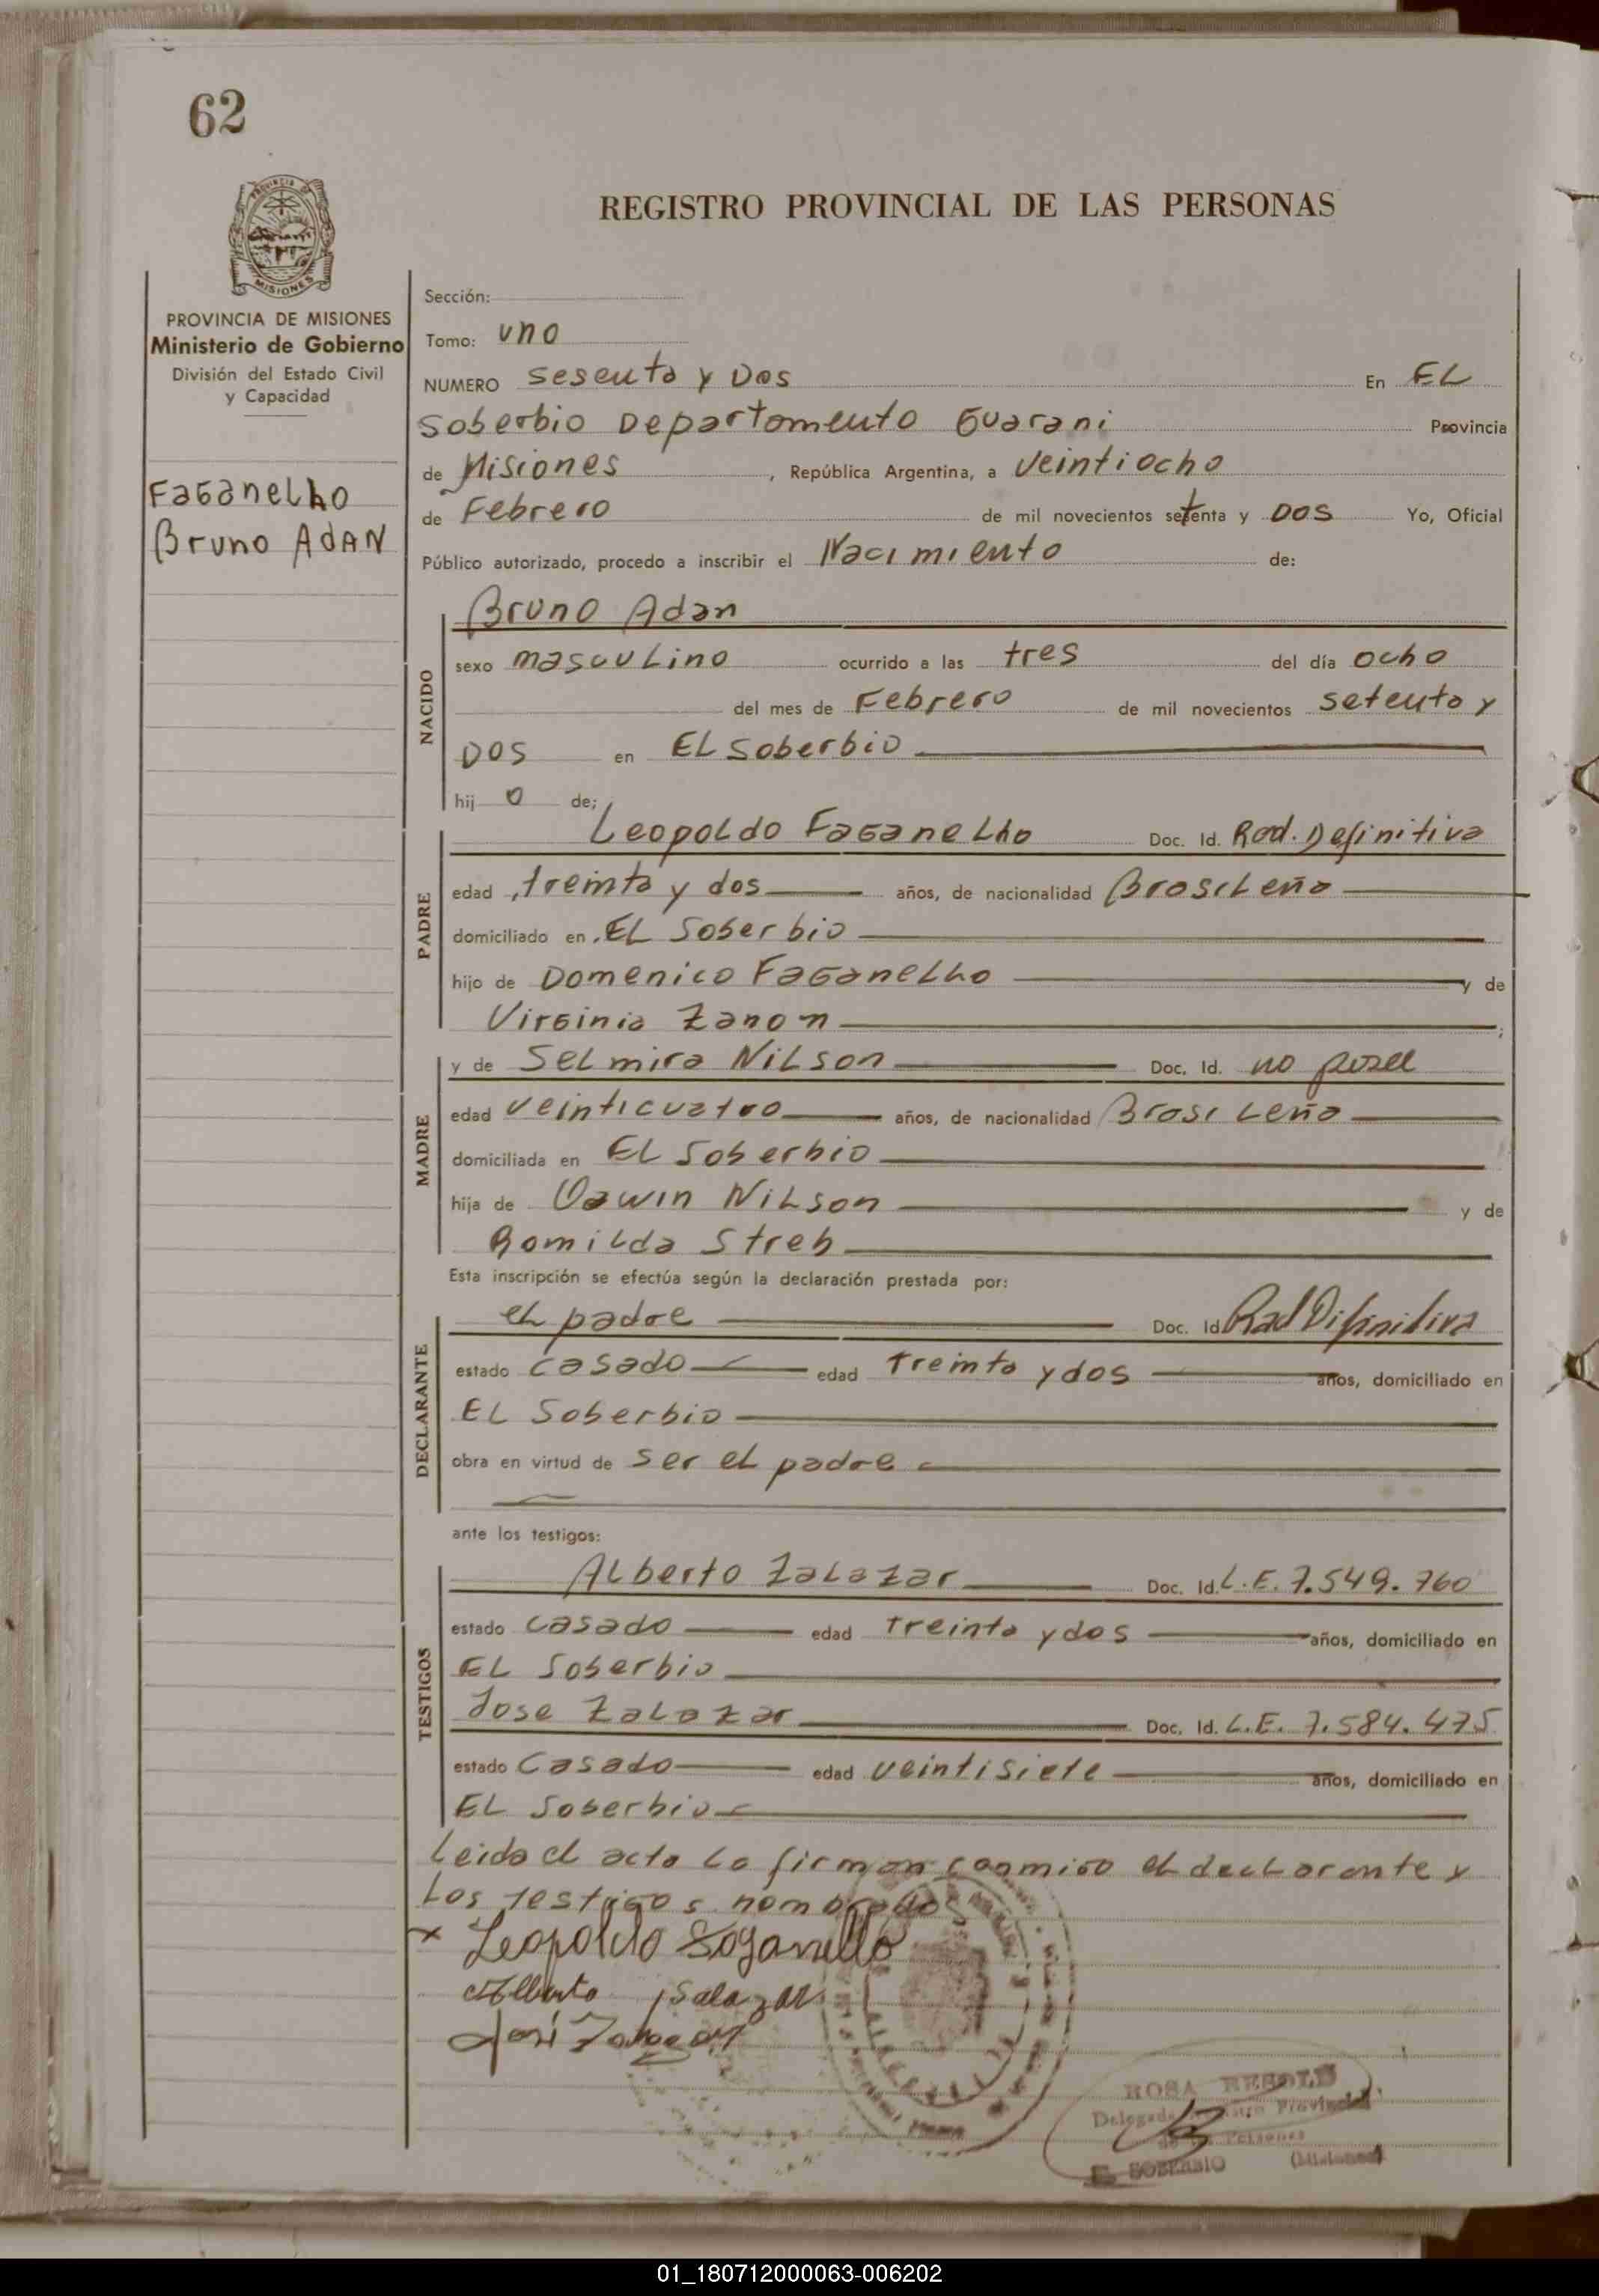 62
PROVINCIA DE
MISIONES
REGISTRO PROVINCIAL DE LAS PERSONAS
PROVINCIA DE MISIONES
Ministerio de Gobierno
División del Estado Civil
y Capacidad
Faganelho
Bruno Adan
Sección:
Tomo: uno
NUMERO sesenta y Dos En EL
Soberbio Departamento Guarani Provincia
de Misiones, República Argentina, a veintiocho
de Febrero de mil novecientos setenta y DOS Yo, Oficial
Público autorizado, procedo a inscribir el Nacimiento de:
NACIDO
Bruno Adan
sexo masculino ocurrido a las tres del día ocho
del mes de Febrero de mil novecientos setenta y
DOS en EL Soberbio
hij o de;
PADRE
Leopoldo Faganelho Doc. Id. Rad. Definitiva
edad treinta y dos años, de nacionalidad Brasileña
domiciliado en EL Soberbio
hijo de Domenico Faganelho y de
Virginia Zanon;
MADRE
y de Selmira Nilson Doc. Id. no posee
edad veinticuatro años, de nacionalidad Brasileña
domiciliada en EL Soberbio
hija de Oawin Nilson y de
Romilda Streb
Esta inscripción se efectúa según la declaración prestada por:
DECLARANTE
el padre Doc. Id Rad Difinitiva
estado casado edad treinta y dos años, domiciliado en
EL Soberbio
obra en virtud de ser el padre
ante los testigos:
TESTIGOS
Alberto Zalazar Doc. Id. L.E. 7.549.760
estado casado edad treinta y dos años, domiciliado en
EL Soberbio
Jose Zalazar Doc. Id. L.E. 7.584.475
estado casado edad veintisiete años, domiciliado en
EL Soberbio
Leida el acta la firman conmigo el declarante y
los testigos nombrados
x Leopoldo Foganello
Alberto Salazar
José Zalazar
ROSA
Delegada Provincial
de Personas
EL SOBERBIO (Misiones)
01_180712000063-006202